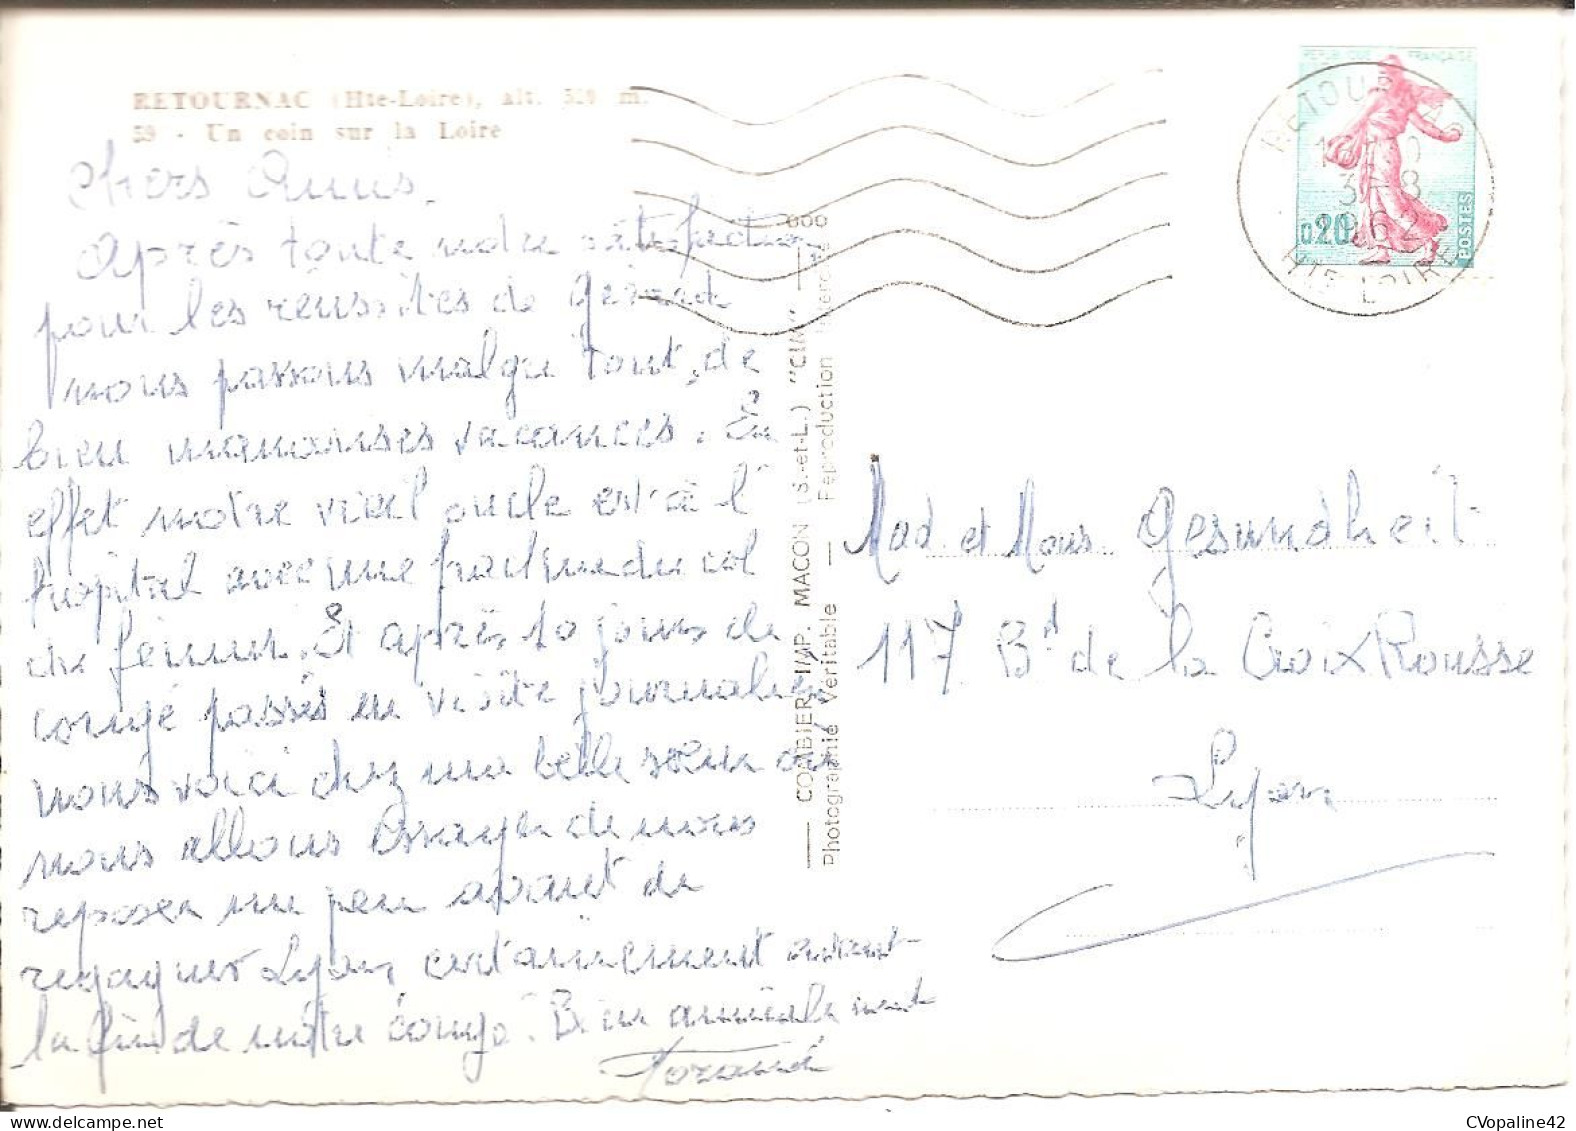 RETOURNAC (Hte-Loire), alt. 520 m.
59 - Un coin sur la Loire
Chers Amis.
Après toute notre satisfaction
pour les réussites de Gérard
nous passons malgré tout, de
bien mauvaises vacances. En
effet notre vieil oncle est à l'
hôpital avec une fracture du col
du fémur. Et après 10 jours de
congé passés en visite journalière
nous voici chez ma belle soeur où
nous allons essayer de nous
reposer un peu avant de
regagner Lyon, certainement avant
la fin de notre congé. Bien amicalement
COMBIER IMP. MACON (S.-et-L.) "CIM"
Photographie Véritable — Reproduction interdite
REPUBLIQUE FRANÇAISE
0,20
POSTES
RETOURNAC
3-8
1962
HTE LOIRE
Mad et Mons Gesundheit
117 Bd de la Croix Rousse
Lyon
CVopaline42